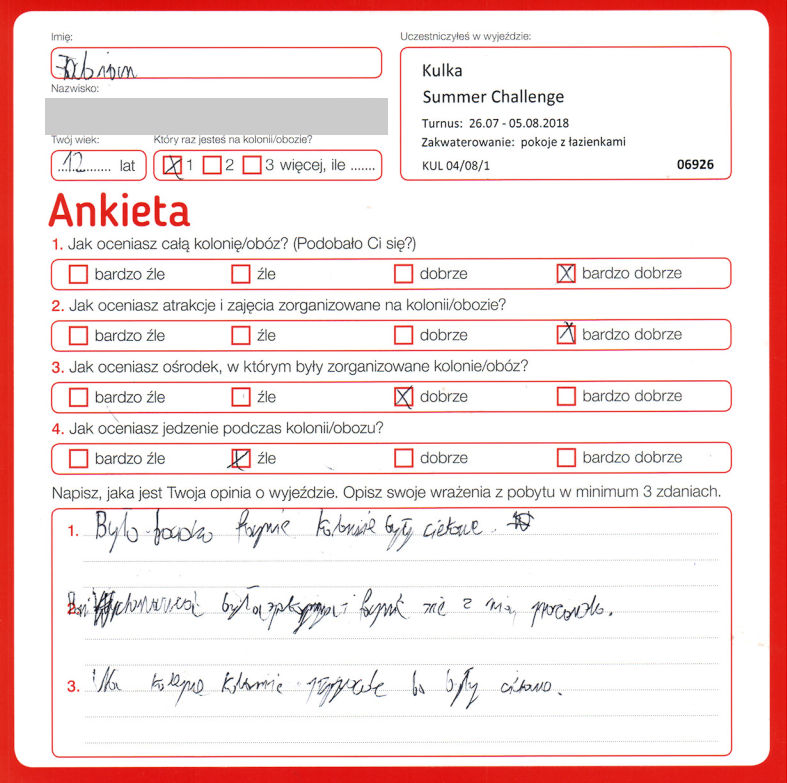 Imię:
Uczestniczyłeś w wyjeździe:
Fabian
Kulka
Summer Challenge
Nazwisko:
Turnus: 26.07 - 05.08.2018
Zakwaterowanie: pokoje z łazienkami
KUL 04/08/1 06926
Twój wiek:
Który raz jesteś na kolonii/obozie?
12 lat
1 2 3 więcej, ile .......
Ankieta
1. Jak oceniasz całą kolonię/obóz? (Podobało Ci się?)
bardzo źle źle dobrze X bardzo dobrze
2. Jak oceniasz atrakcje i zajęcia zorganizowane na kolonii/obozie?
bardzo źle źle dobrze X bardzo dobrze
3. Jak oceniasz ośrodek, w którym były zorganizowane kolonie/obóz?
bardzo źle źle X dobrze bardzo dobrze
4. Jak oceniasz jedzenie podczas kolonii/obozu?
bardzo źle X źle dobrze bardzo dobrze
Napisz, jaka jest Twoja opinia o wyjeździe. Opisz swoje wrażenia z pobytu w minimum 3 zdaniach.
1. Było bardzo fajnie kolonie były ciekawe.
2. była i fajnie się z nią
3. Na kolejne kolonie bo były